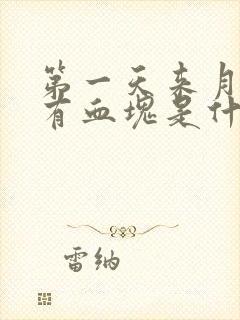 第一天来月
有血块是什
雷纳